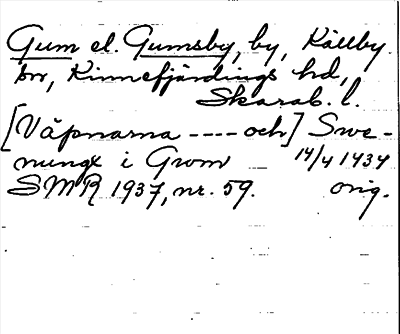 Gum el. Gumsby, by, Källby
sn, Kinnefjärdings hd,
Skarab. l.
[Väpnarna ---- och] Swe-
nungx i Gwm 14/4 1434
SMR 1937, nr. 59. orig.